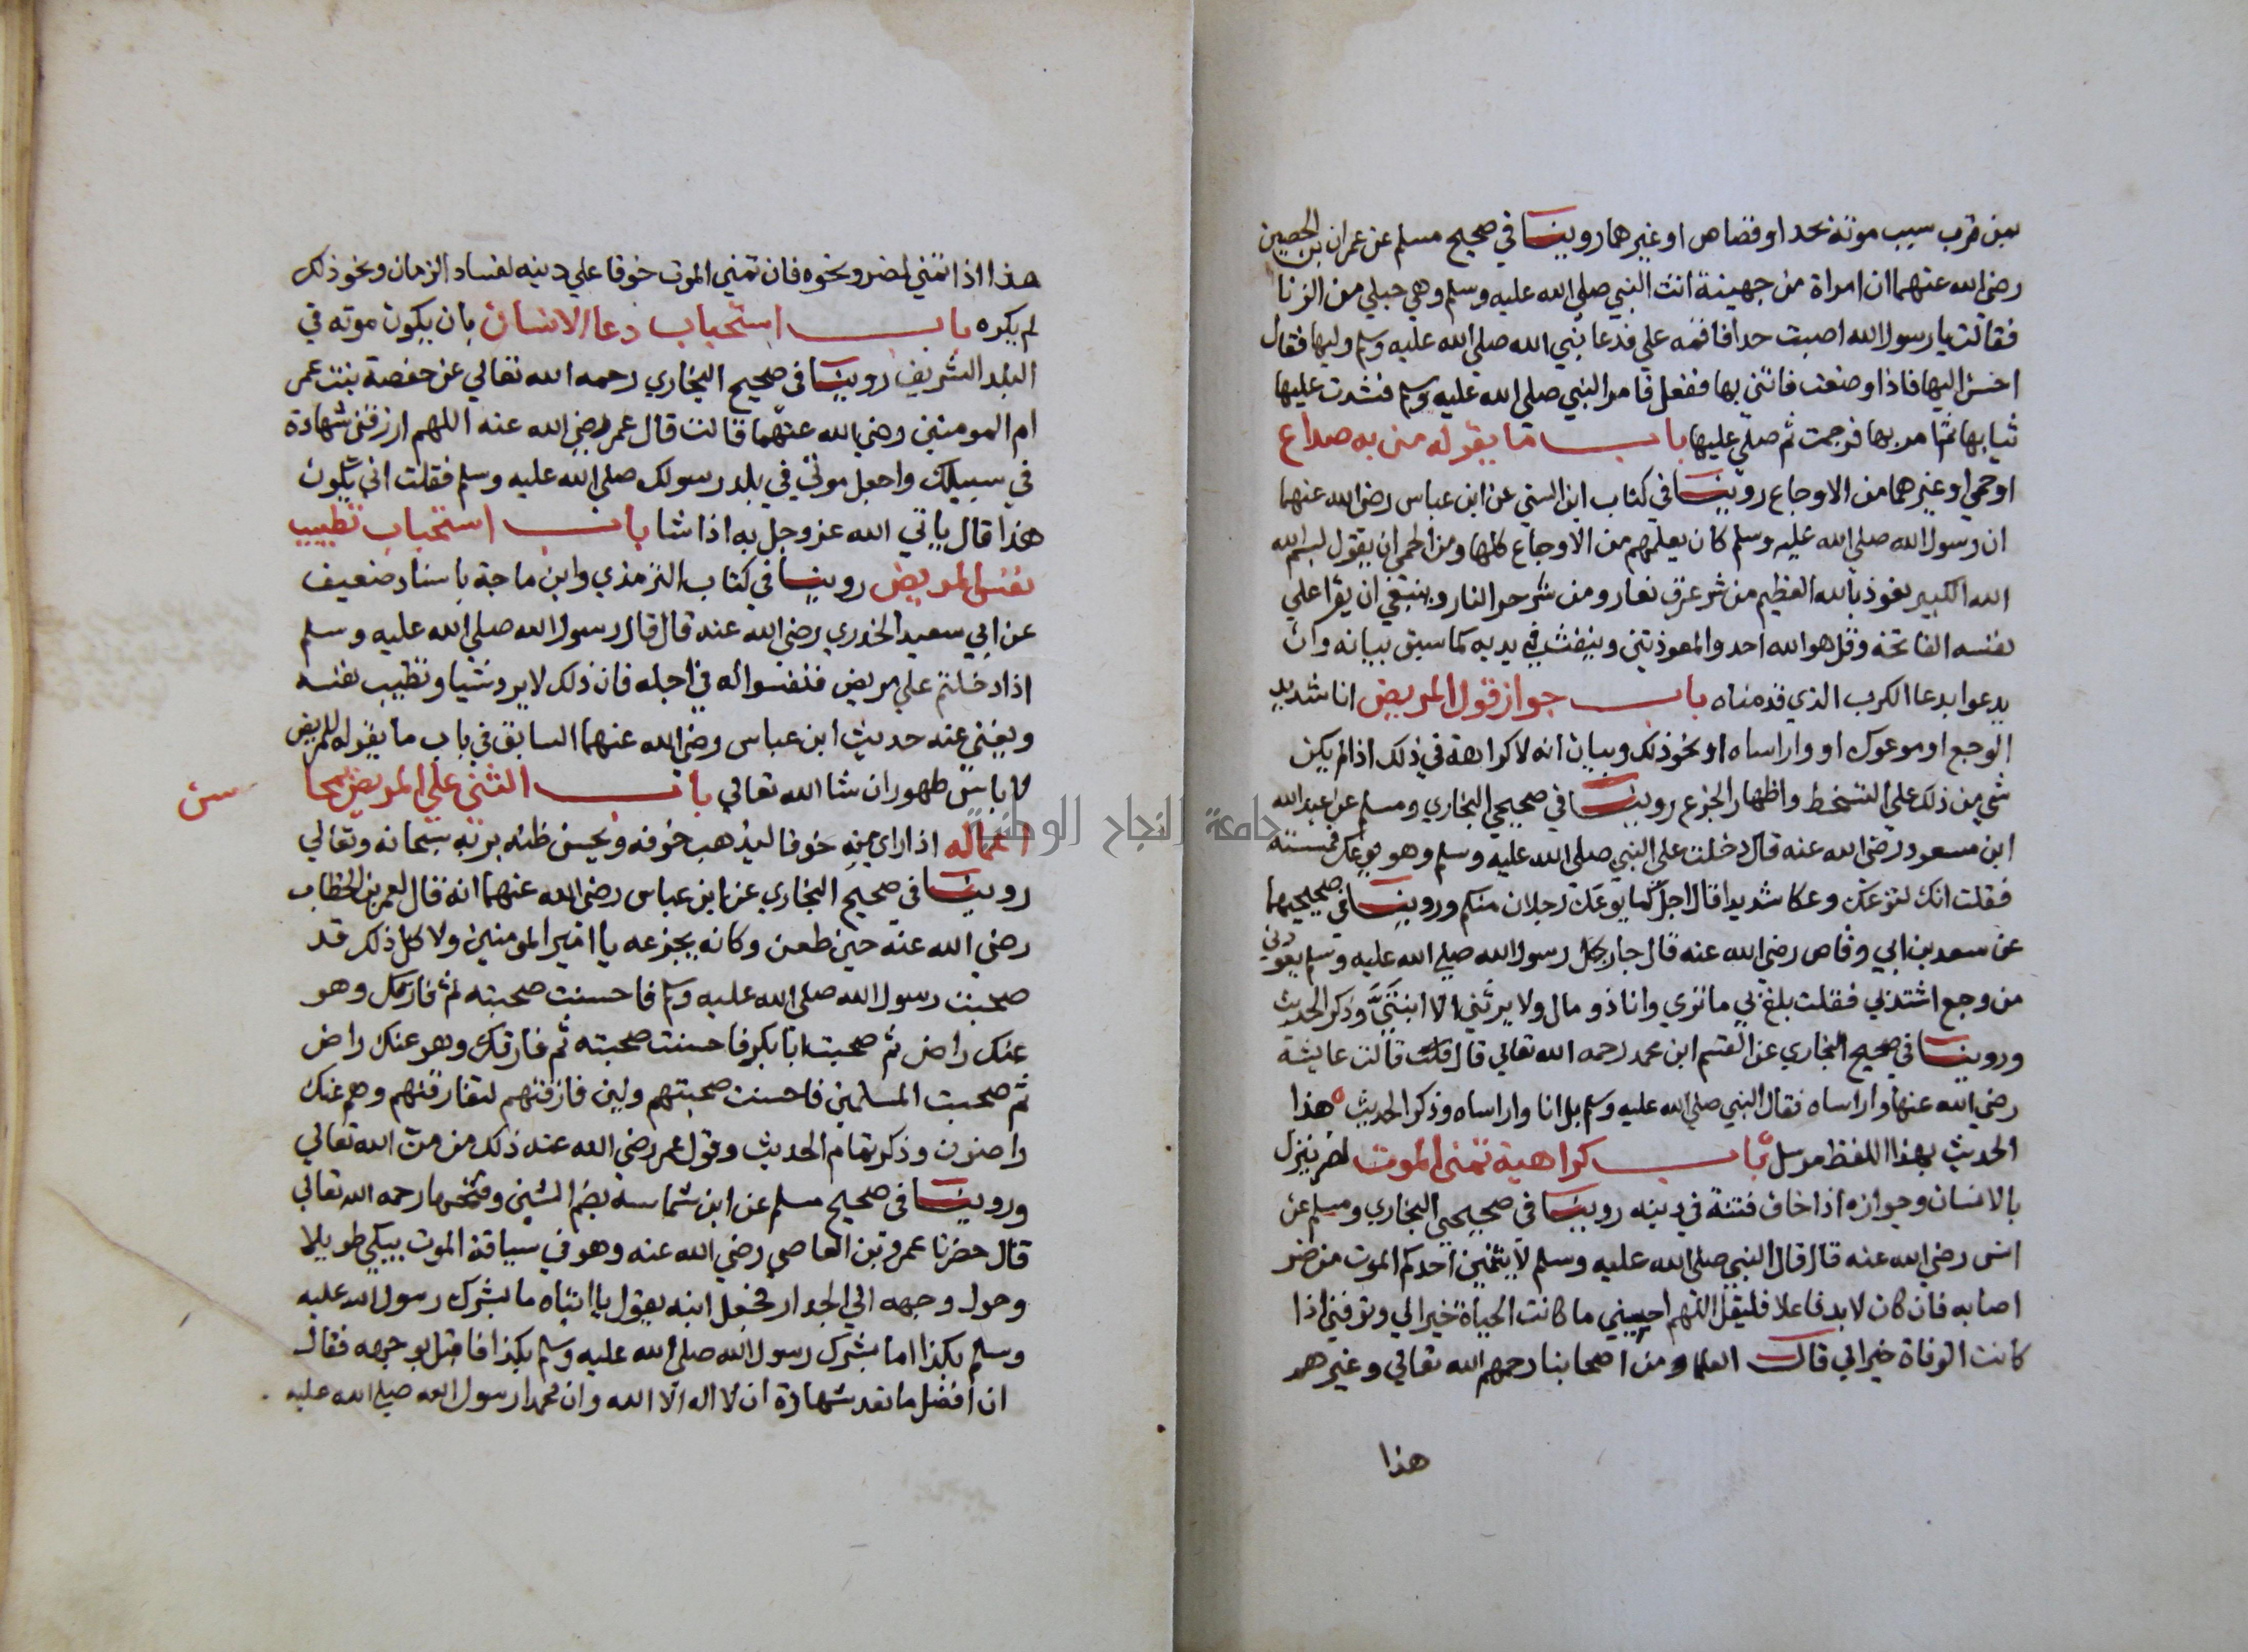 بمن قرب سبب موته بحد او قصاص او غيرهما روينا في صحيح مسلم عن عمران بن الحصين
رضي الله عنهما ان امراة من جهينة اتت النبي صلي الله عليه وسلم وهي حبلي من الزنا
فقالت يا رسول الله اصبت حدا فاقمه علي فدعا نبي الله صلي الله عليه وسلم وليها فقال
احسن اليها فاذا وضعت فاتني بها ففعل فامر النبي صلي الله عليه وسلم فشدت عليها
ثيابها ثم امر بها فرجمت ثم صلي عليها باب ما يقوله من به صداع
او حمي او غيرهما من الاوجاع روينا في كتاب ابن السني عن ابن عباس رضي الله عنهما
ان رسول الله صلي الله عليه وسلم كان يعلمهم من الاوجاع كلها ومن الحمي ان يقول بسم الله
الله الكبير نعوذ بالله العظيم من شر عرق نعار ومن شر حر النار وينبغي ان يقرا علي
نفسه الفاتحة وقل هو الله احد والمعوذتين وينفث في يديه كما سبق بيانه وان
يدعوا بدعا الكرب الذي قدمناه باب جواز قول المريض انا شديد
الوجع او موعوك او واراساه او نحو ذلك وبيان انه لا كراهة في ذلك اذا لم يكن
شي من ذلك علي التسخط واظهار الجزع روينا في صحيحي البخاري ومسلم عن عبد الله
ابن مسعود رضي الله عنه قال دخلت علي النبي صلي الله عليه وسلم وهو يوعك فمسسته
فقلت انك لتوعك وعكا شديدا قال اجل كما يوعك رجلان منكم وروينا في صحيحيهما
عن سعد بن ابي وقاص رضي الله عنه قال جا رجل رسول الله صلي الله عليه وسلم يعودني
من وجع اشتد بي فقلت بلغ بي ما تري وانا ذو مال ولا يرثني الا ابنتي وذكر الحديث
وروينا في صحيح البخاري عن القسم ابن محمد رحمه الله تعالي قال قالت عايشة
رضي الله عنها واراساه فقال النبي صلي الله عليه وسلم بل انا واراساه وذكر الحديث هذا
الحديث بهذا اللفظ مرسل باب كراهية تمني الموت لضر ينزل
بالانسان وجوازه اذا خاف فتنة في دينه روينا في صحيحي البخاري ومسلم عن
انس رضي الله عنه قال قال النبي صلي الله عليه وسلم لا يتمنين احدكم الموت من ضر
اصابه فان كان لا بد فاعلا فليقل اللهم احييني ما كانت الحياة خيرا لي وتوفني اذا
كانت الوفاة خيرا لي قال العلما ومن اصحابنا رحمهم الله تعالي وغيرهم
هذا
هذا اذا تمني لضر ونحوه فان تمني الموت خوفا علي دينه لفساد الزمان ونحو ذلك
لم يكره باب استحباب دعا الانسان بان يكون موته في
البلد الشريف روينا في صحيح البخاري رحمه الله تعالي عن حفصة بنت عمر
ام المومنين رضي الله عنهما قالت قال عمر رضي الله عنه اللهم ارزقني شهادة
في سبيلك واجعل موتي في بلد رسولك صلي الله عليه وسلم فقلت اني يكون
هذا قال ياتي الله عز وجل به اذا شا باب استحباب تطييب
نفس المريض روينا في كتاب الترمذي وابن ماجة باسناد ضعيف
عن ابي سعيد الخدري رضي الله عنه قال قال رسول الله صلي الله عليه وسلم
اذا دخلتم علي مريض فنفسوا له في اجله فان ذلك لا يرد شيا وتطييب نفسه
ويغني عنه حديث ابن عباس رضي الله عنهما السابق في باب ما يقوله للمريض
لا باس طهور ان شا الله تعالي باب الثني علي المريض بمحا
سن
اعماله اذا راي منه خوفا ليذهب خوفه ويحسن ظنه بربه سبحانه وتعالي
روينا في صحيح البخاري عن ابن عباس رضي الله عنهما انه قال لعمر بن الخطاب
رضي الله عنه حين طعن وكانه يجزعه يا امير المومنين ولا كل ذلك قد
صحبت رسول الله صلي الله عليه وسلم فاحسنت صحبته ثم فارقك وهو
عنك راض ثم صحبت ابا بكر فاحسنت صحبته ثم فارقك وهو عنك راض
ثم صحبت المسلمين فاحسنت صحبتهم ولين فارقتهم لتفارقنهم وهم عنك
راضون وذكر تمام الحديث وقول عمر رضي الله عنه ذلك من من الله تعالي
وروينا في صحيح مسلم عن ابن شماسة بضم الشين وفتحها رحمه الله تعالي
قال حضرنا عمرو بن العاصي رضي الله عنه وهو في سياقة الموت يبكي طويلا
وحول وجهه الي الجدار فجعل ابنه يقول يا ابتاه ما بشرك رسول الله عليه
وسلم بكذا اما بشرك رسول الله صلي الله عليه وسلم بكذا فاقبل بوجهه فقال
ان افضل ما نعد شهادة ان لا اله الا الله وان محمدا رسول الله صلي الله عليه
جامعة النجاح الوطنية